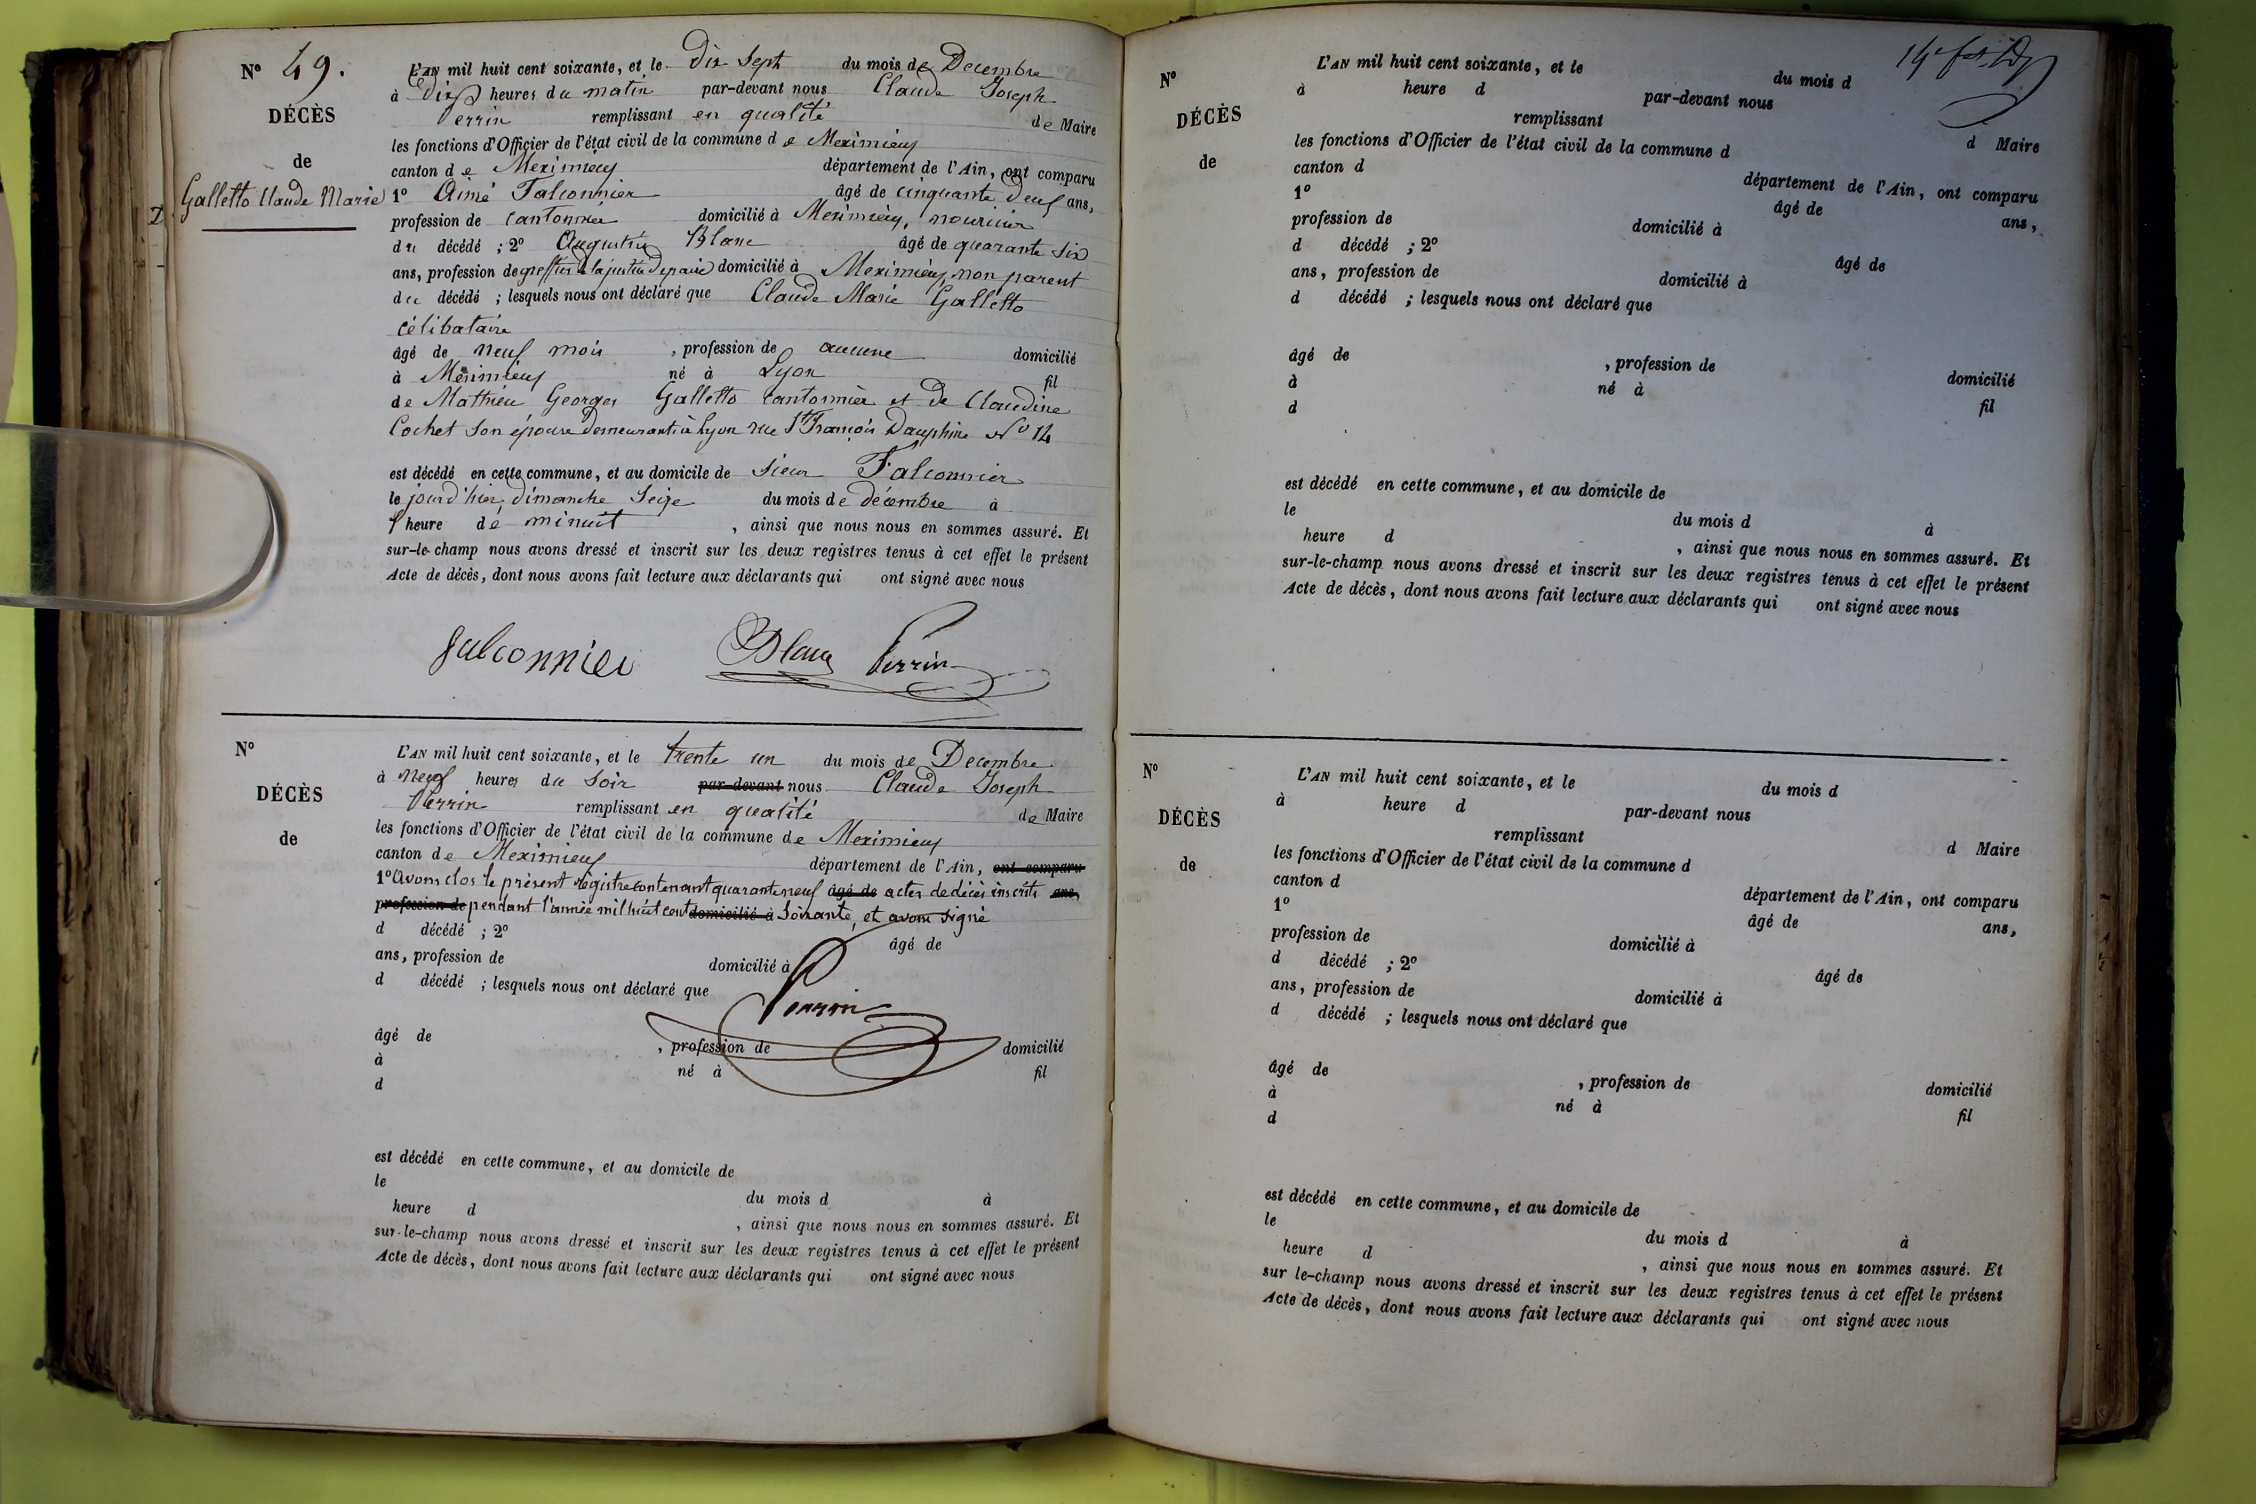 N° 49.
DÉCÈS
de
Galletto Claude Marie
L'AN mil huit cent soixante, et le dix Sept du mois de Decembre
à Dix heures du matin par-devant nous Claude Joseph
Perrin remplissant en qualité de Maire
les fonctions d'Officier de l'état civil de la commune de Meximieux
canton de Meximieux département de l'Ain, ont comparu
1° Aimé Falconnier âgé de cinquante Deux ans,
profession de cantonnier domicilié à Meximieux, nouricier
du décédé ; 2° Augustin Blanc âgé de quarante Six
ans, profession de greffier de la justice De paix domicilié à Meximieux, non parent
du décédé ; lesquels nous ont déclaré que Claude Marie Galletto
célibataire
âgé de neuf mois , profession de aucune domicilié
à Meximieux né à Lyon fil
de Mathieu Georges Galletto cantonnier et de Claudine
Cochet Son épouse Demeurant à Lyon rue St François Dauphine N° 14
est décédé en cette commune, et au domicile de Sieur Falconnier
le jourd'hier, dimanche Seize du mois de décembre à
l'heure de minuit , ainsi que nous nous en sommes assuré. Et
sur-le-champ nous avons dressé et inscrit sur les deux registres tenus à cet effet le présent
Acte de décès, dont nous avons fait lecture aux déclarants qui ont signé avec nous
falconnier Blanc Perrin
N°
DÉCÈS
de
L'AN mil huit cent soixante, et le trente un du mois de Decembre
à neuf heures du Soir par-devant nous Claude Joseph
Perrin remplissant en qualité de Maire
les fonctions d'Officier de l'état civil de la commune de Meximieux
canton de Meximieux département de l'Ain, ont comparu
1° Avons clos le présent régistre contenant quarante neuf âgé de actes de décès inscrits ans,
profession de pendant l'année mil huit cent domicilié à Soixante, et avons signé
d décédé ; 2° âgé de
ans, profession de domicilié à
d décédé ; lesquels nous ont déclaré que
Perrin
âgé de , profession de domicilié
à né à fil
d
est décédé en cette commune, et au domicile de
le du mois d à
heure d , ainsi que nous nous en sommes assuré. Et
sur-le-champ nous avons dressé et inscrit sur les deux registres tenus à cet effet le présent
Acte de décès, dont nous avons fait lecture aux déclarants qui ont signé avec nous
N°
DÉCÈS
de
L'AN mil huit cent soixante, et le du mois d
à heure d par-devant nous
remplissant d Maire
les fonctions d'Officier de l'état civil de la commune d
canton d département de l'Ain, ont comparu
1° âgé de ans,
profession de domicilié à
d décédé ; 2° âgé de
ans, profession de domicilié à
d décédé ; lesquels nous ont déclaré que
âgé de , profession de domicilié
à né à fil
d
est décédé en cette commune, et au domicile de
le du mois d à
heure d , ainsi que nous nous en sommes assuré. Et
sur-le-champ nous avons dressé et inscrit sur les deux registres tenus à cet effet le présent
Acte de décès, dont nous avons fait lecture aux déclarants qui ont signé avec nous
N°
DÉCÈS
de
L'AN mil huit cent soixante, et le du mois d
à heure d par-devant nous
remplissant d Maire
les fonctions d'Officier de l'état civil de la commune d
canton d département de l'Ain, ont comparu
1° âgé de ans,
profession de domicilié à
d décédé ; 2° âgé de
ans, profession de domicilié à
d décédé ; lesquels nous ont déclaré que
âgé de , profession de domicilié
à né à fil
d
est décédé en cette commune, et au domicile de
le du mois d à
heure d , ainsi que nous nous en sommes assuré. Et
sur le-champ nous avons dressé et inscrit sur les deux registres tenus à cet effet le présent
Acte de décès, dont nous avons fait lecture aux déclarants qui ont signé avec nous